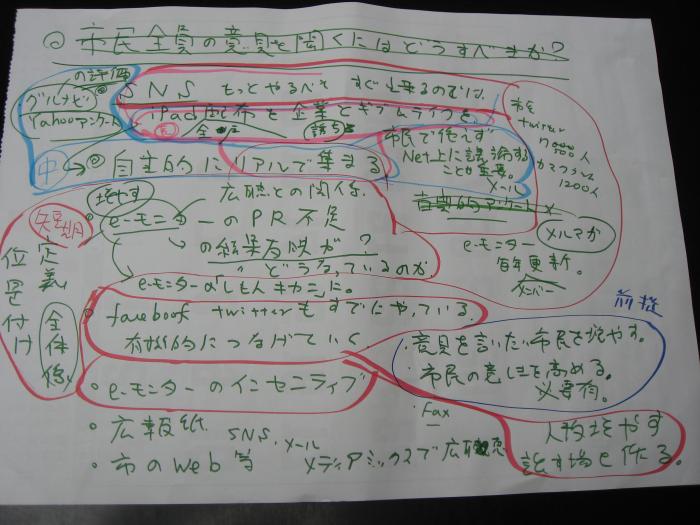 ◎ 市民全員の意見を聞くにはどうすべきか?
の評価
グルナビ
Yahooアンケート
SNS もっとやるべき すぐ出来るのでは。
iPad配布を企業とギブ&テイクを
全戸
誘致
中
◎自主的にリアルで集まる
市民で絶えず
Net上に議論する
ことが重要。
メール
twitter
1200人
増やす
広聴との関係.
直接的アンケート
・e-モニターのPR不足
の結果反映が?
どうなっているのか.
e-モニター
毎年更新。
メンバー
メルマガ
短期
定義
位置付け
全体像
e-モニターの「しもん キカン」に。
・facebook twitterもすでにやっている.
有機的につなげていく
・e-モニターのインセンティブ
前提
・意見を言いたい市民を増やす。
・市民の意识を高める。
必要有。
・Fax
・広報紙 SNS、メール
・市のWeb等 メディアミックスで広聴
人物増やす
話す場を作る。